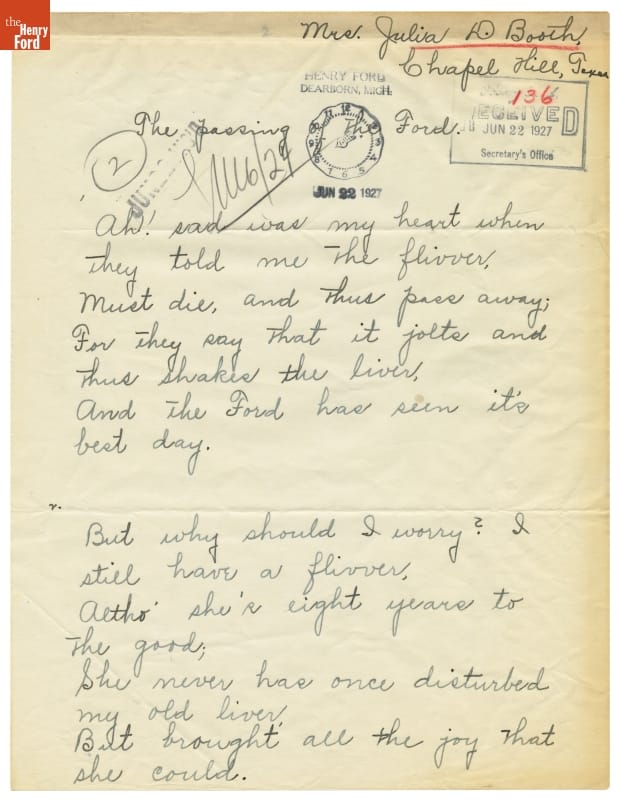 the
Henry
Ford
2
Mrs. Julia D. Booth,
Chapel Hill, Texas
HENRY FORD
DEARBORN, MICH.
136
RECEIVED
JUN 22 1927
Secretary's Office
The passing The Ford.
2
JUN 22 1927
'Ah! sad was my heart when
they told me the flivver,
Must die, and thus pass away;
For they say that it jolts and
thus shakes the liver,
And the Ford has seen it's
best day.
2.
But why should I worry? I
still have a flivver,
Altho' she's eight years to
the good;
She never has once disturbed
my old liver,
But brought all the joy that
she could.